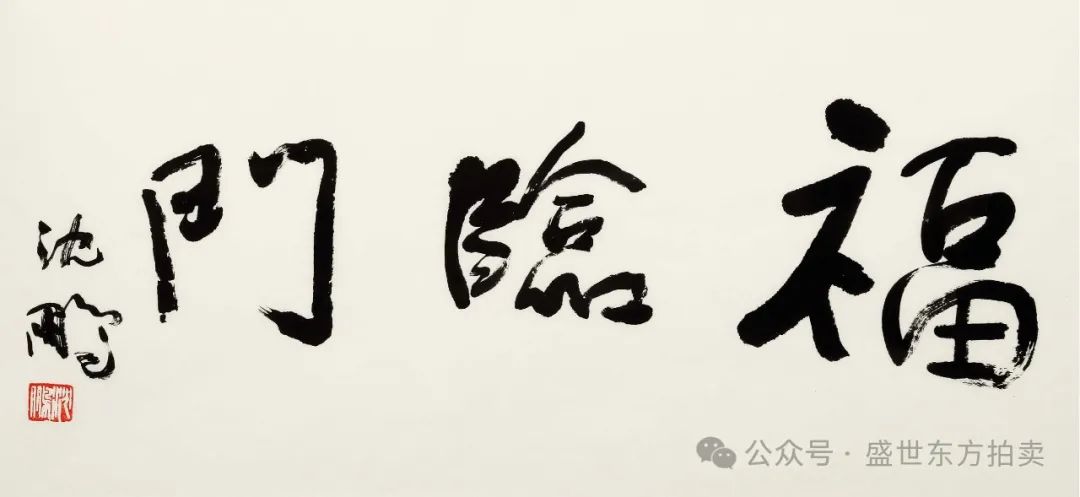 福臨門
沈鵬
沈鵬
公众号·盛世东方拍卖